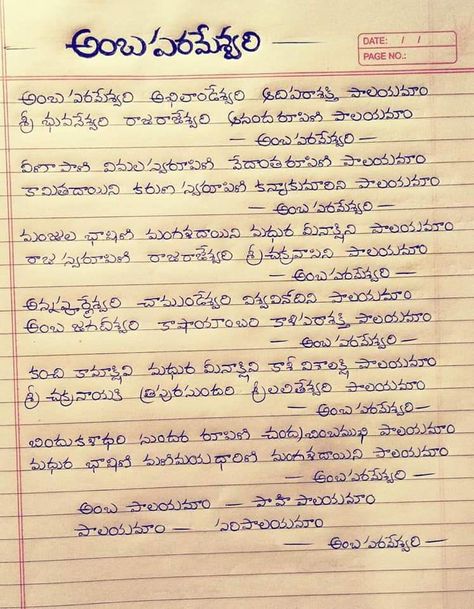 అంబ పరమేశ్వరి
DATE: / /
PAGE NO.:
అంబ పరమేశ్వరి అఖిలాండేశ్వరి ఆదిపరాశక్తి పాలయమాం
శ్రీ భువనేశ్వరి రాజరాజేశ్వరి ఆనంద రూపిణి పాలయమాం
— అంబ పరమేశ్వరి —
వీణాపాణి విమలస్వరూపిణి వేదాంతరూపిణి పాలయమాం
కామితదాయిని కరుణ స్వరూపిణి కన్యాకుమారిని పాలయమాం
— అంబ పరమేశ్వరి —
మంజుల భాషిణి మంగళదాయిని మధుర మీనాక్షిని పాలయమాం
రాజ స్వరూపిణి రాజరాజేశ్వరి శ్రీచక్రవాసిని పాలయమాం
— అంబ పరమేశ్వరి —
అన్నపూర్ణేశ్వరి చాముండేశ్వరి విశ్వవినోదిని పాలయమాం
అంబ జగదీశ్వరి కాషాయాంబరి కాళిపరాశక్తి పాలయమాం
— అంబ పరమేశ్వరి —
కంచి కామాక్షిని మధుర మీనాక్షిని కాశీ విశాలక్షి పాలయమాం
శ్రీ చక్రనాయకి త్రిపురసుందరి శ్రీలలితేశ్వరి పాలయమాం
— అంబ పరమేశ్వరి —
బిందుకళాధరి సుందర రూపిణి చంద్రబింబముఖి పాలయమాం
మధుర భాషిణి మణిమయధారిణి మంగళదాయిని పాలయమాం
— అంబ పరమేశ్వరి —
అంబ పాలయమాం — పాహి పాలయమాం
పాలయమాం — పరిపాలయమాం
— అంబ పరమేశ్వరి —